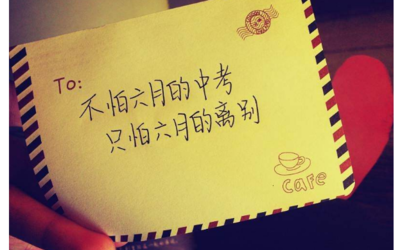 To:
不怕六月的中考
只怕六月的离别
cafe